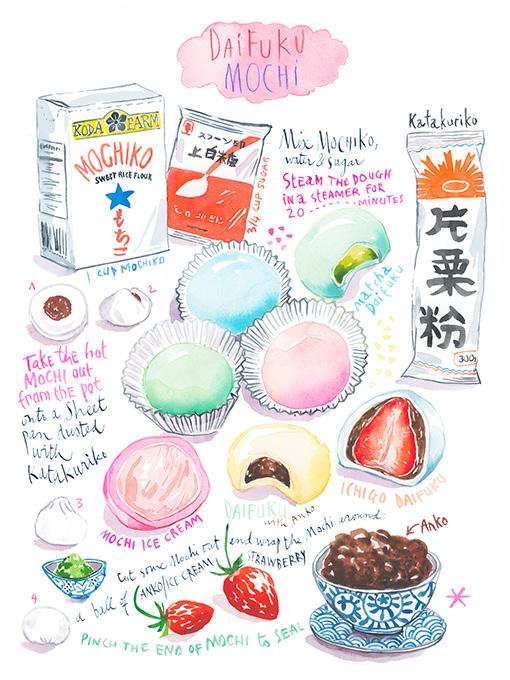 DAIFUKU
MOCHI
KODA FARM
MOCHIKO
SWEET RICE FLOUR
もちこ
1 CUP MOCHIKO
スプーン印
上白糖
3/4 CUP SUGAR
Mix MOCHIKO,
water & sugar
STEAM THE DOUGH
in a STEAMER FOR
20 MINUTES
Katakuriko
片栗粉
300g
matcha
Daifuku
1
2
Take the hot
MOCHI out
from the pot
onto a sheet
pan dusted
with
Katakuriko
3
4
MOCHI ICE CREAM
DAIFUKU
with Anko
ICHIGO DAIFUKU
Anko
Cut some Mochi out and wrap the Mochi around:
a ball of ANKO/ICE CREAM STRAWBERRY
PINCH THE END OF MOCHI to SEAL